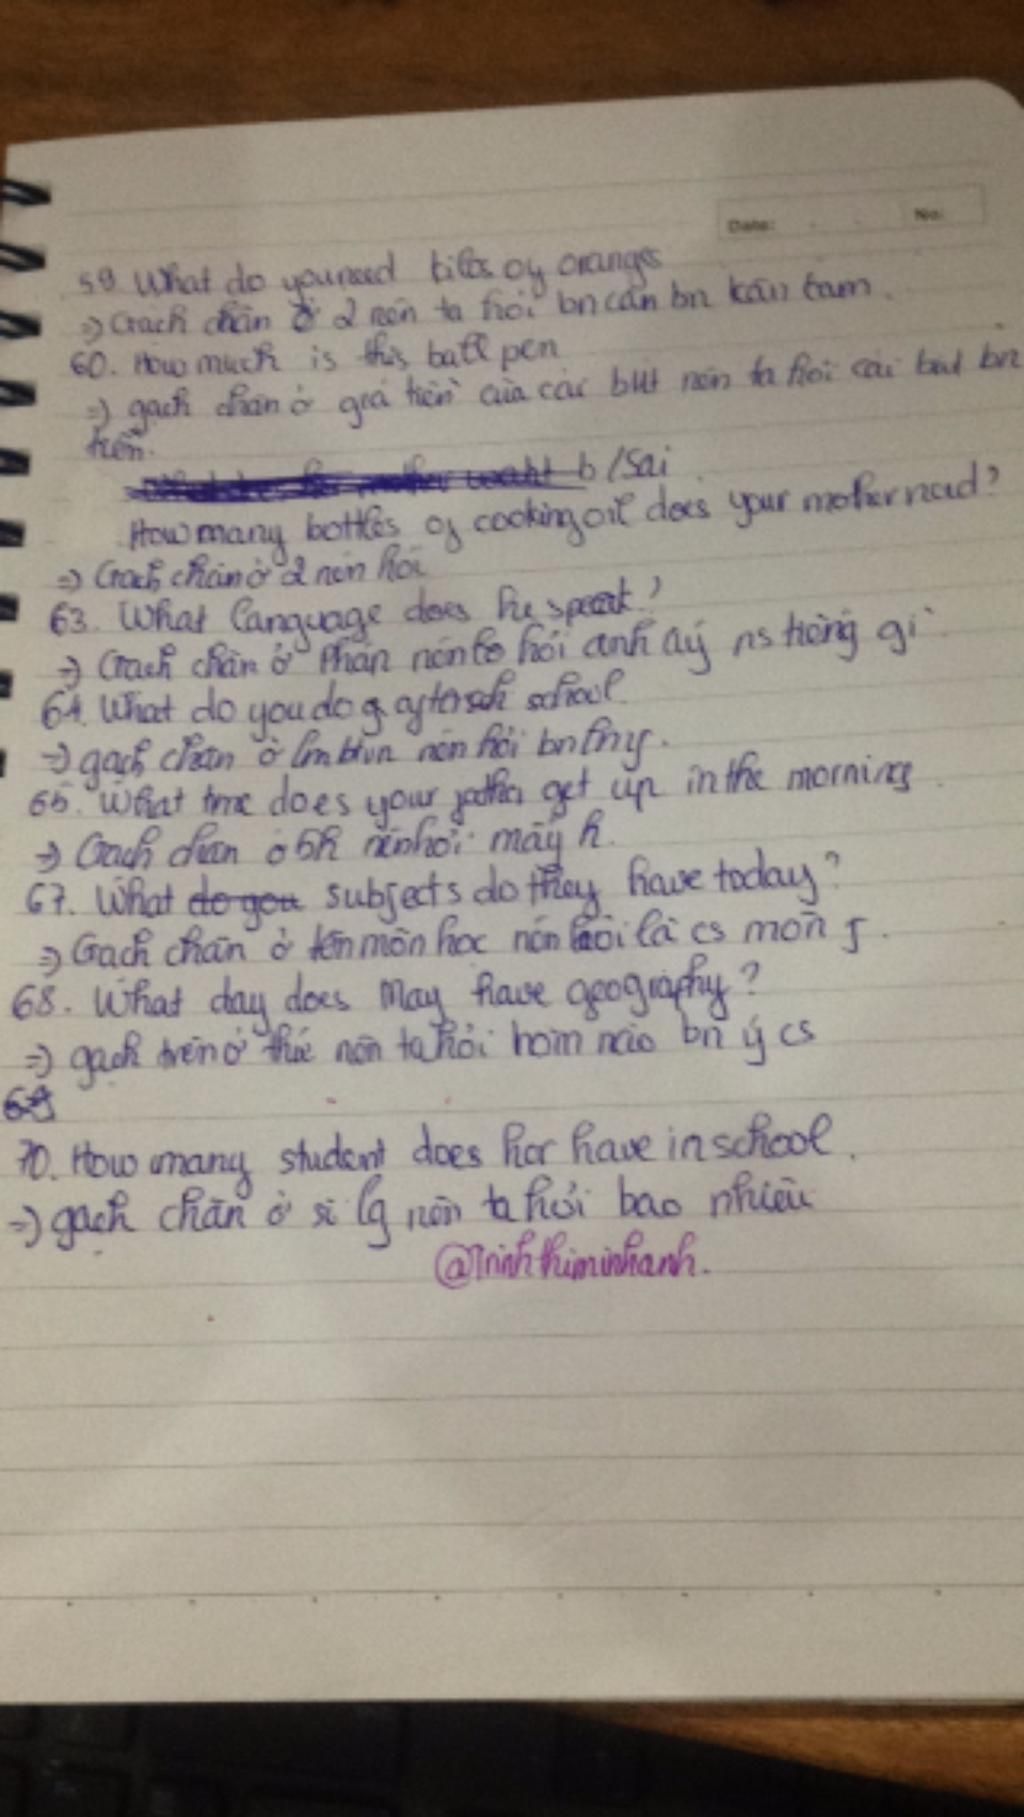 Date: No:
59 What do you need kilos of oranges
=> Gạch chân ở 2 nên ta hỏi bn cần bn kâu cam.
60. How much is this ball pen
=> gạch chân ở giá tiền của các bút nên ta hỏi cái bút bn
tiền.
b/Sai
How many bottles of cooking oil does your mother need?
=> Gạch chân ở 2 nên hỏi
63. What language does he speak?
=> Gạch chân ở Phần nên hỏi anh ấy ns tiếng gì
64. What do you do after school.
=> gạch chân ở nên hỏi bn
65. What time does your father get up in the morning.
=> Gạch chân ở 5h nên hỏi mấy h.
67. What do you subjects do they have today?
=> Gạch chân ở tên môn học nên hỏi là cs môn j.
68. What day does May have geography?
=> gạch trên ở thứ nên ta hỏi hôm nào bn ý cs
69
70. How many student does her have in school.
=> gạch chân ở số lg nên ta hỏi bao nhiêu
@trinhthiminhanh.